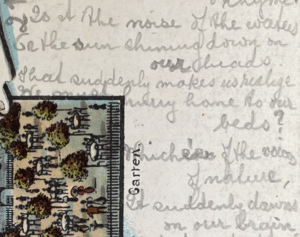 Is it the noise of the waters
Or the sun shining down on
our heads
That suddenly makes us realize
We must hurry home to our
beds?
of the voices
of nature,
It suddenly dawns
on our brain
Garten.